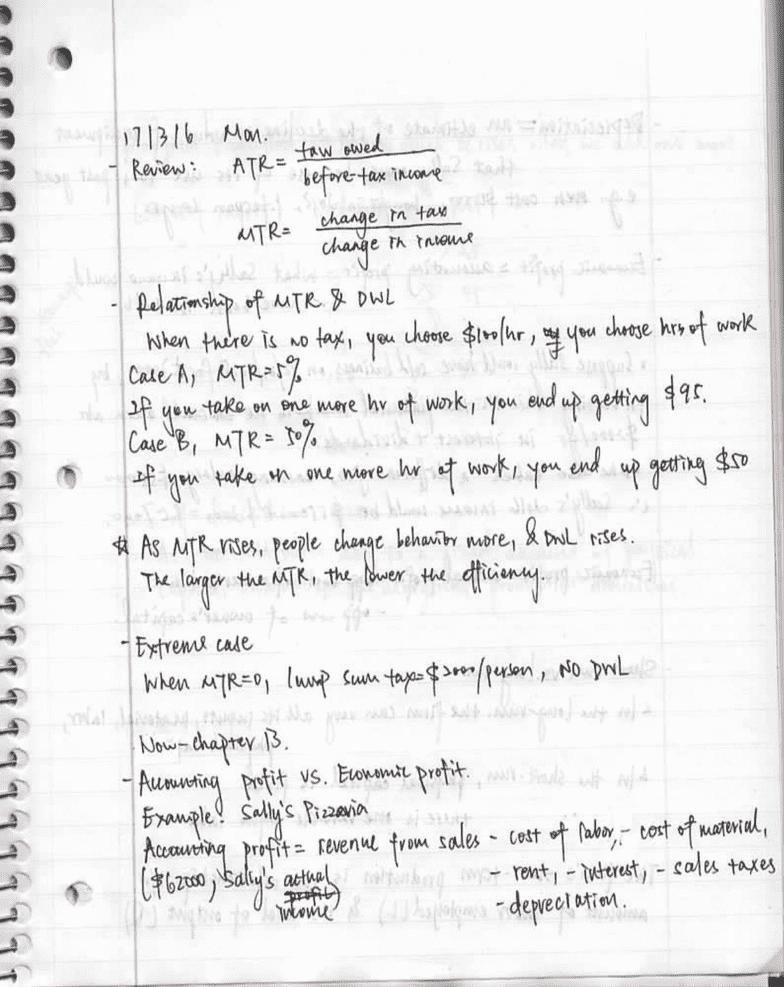 17/3/6 Mon.
- Review: ATR = tax owed / before-tax income
MTR = change in tax / change in income
- Relationship of MTR & DWL
When there is no tax, you choose $100/hr, you choose hrs of work
Case A, MTR=5%
If you take on one more hr of work, you end up getting $95.
Case B, MTR = 50%
If you take on one more hr of work, you end up getting $50
* As MTR rises, people change behavior more, & DWL rises.
The larger the MTR, the lower the efficiency.
- Extreme case
When MTR=0, lump sum tax=$2000/person, NO DWL
Now-chapter 13.
- Accounting profit vs. Economic profit.
Example: Sally's Pizzaria
Accounting profit = revenue from sales - cost of labor, - cost of material,
($62000, Sally's actual income) - rent, - interest, - sales taxes
- depreciation.